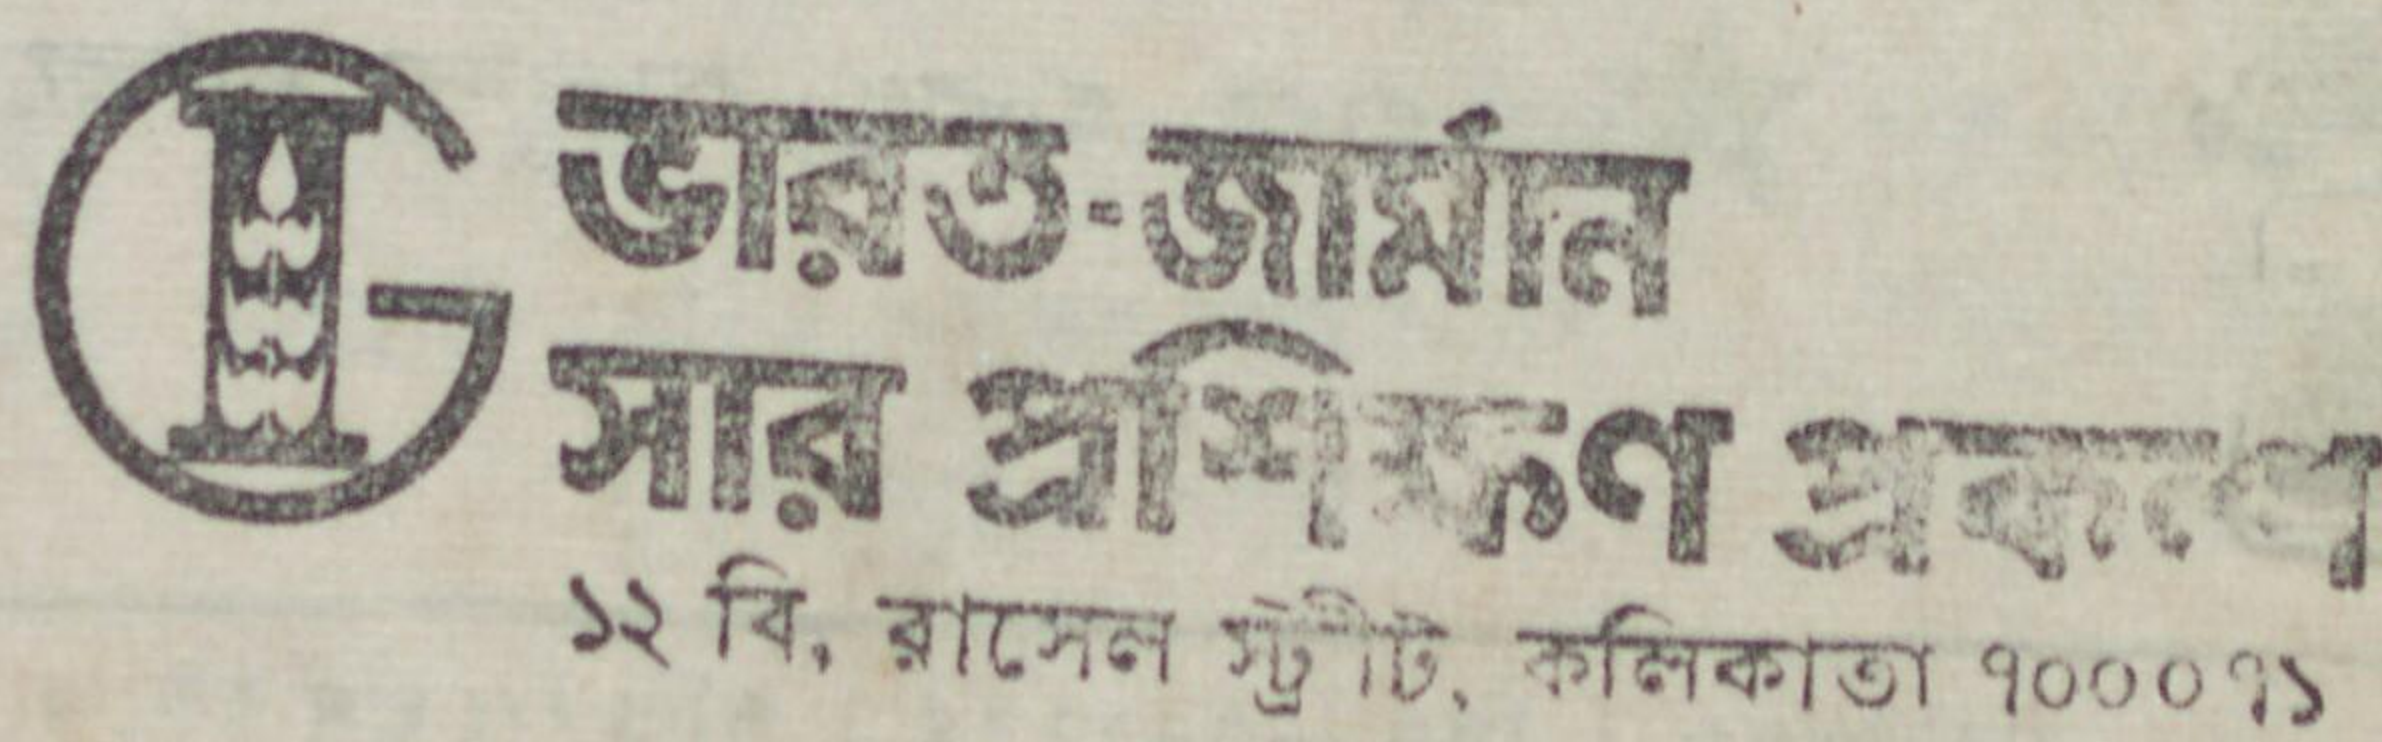 ভারত-জার্মান
সার প্রশিক্ষণ প্রকল্প
১২ বি, রাসেল স্ট্রীট, কলিকাতা ৭০০০৭১